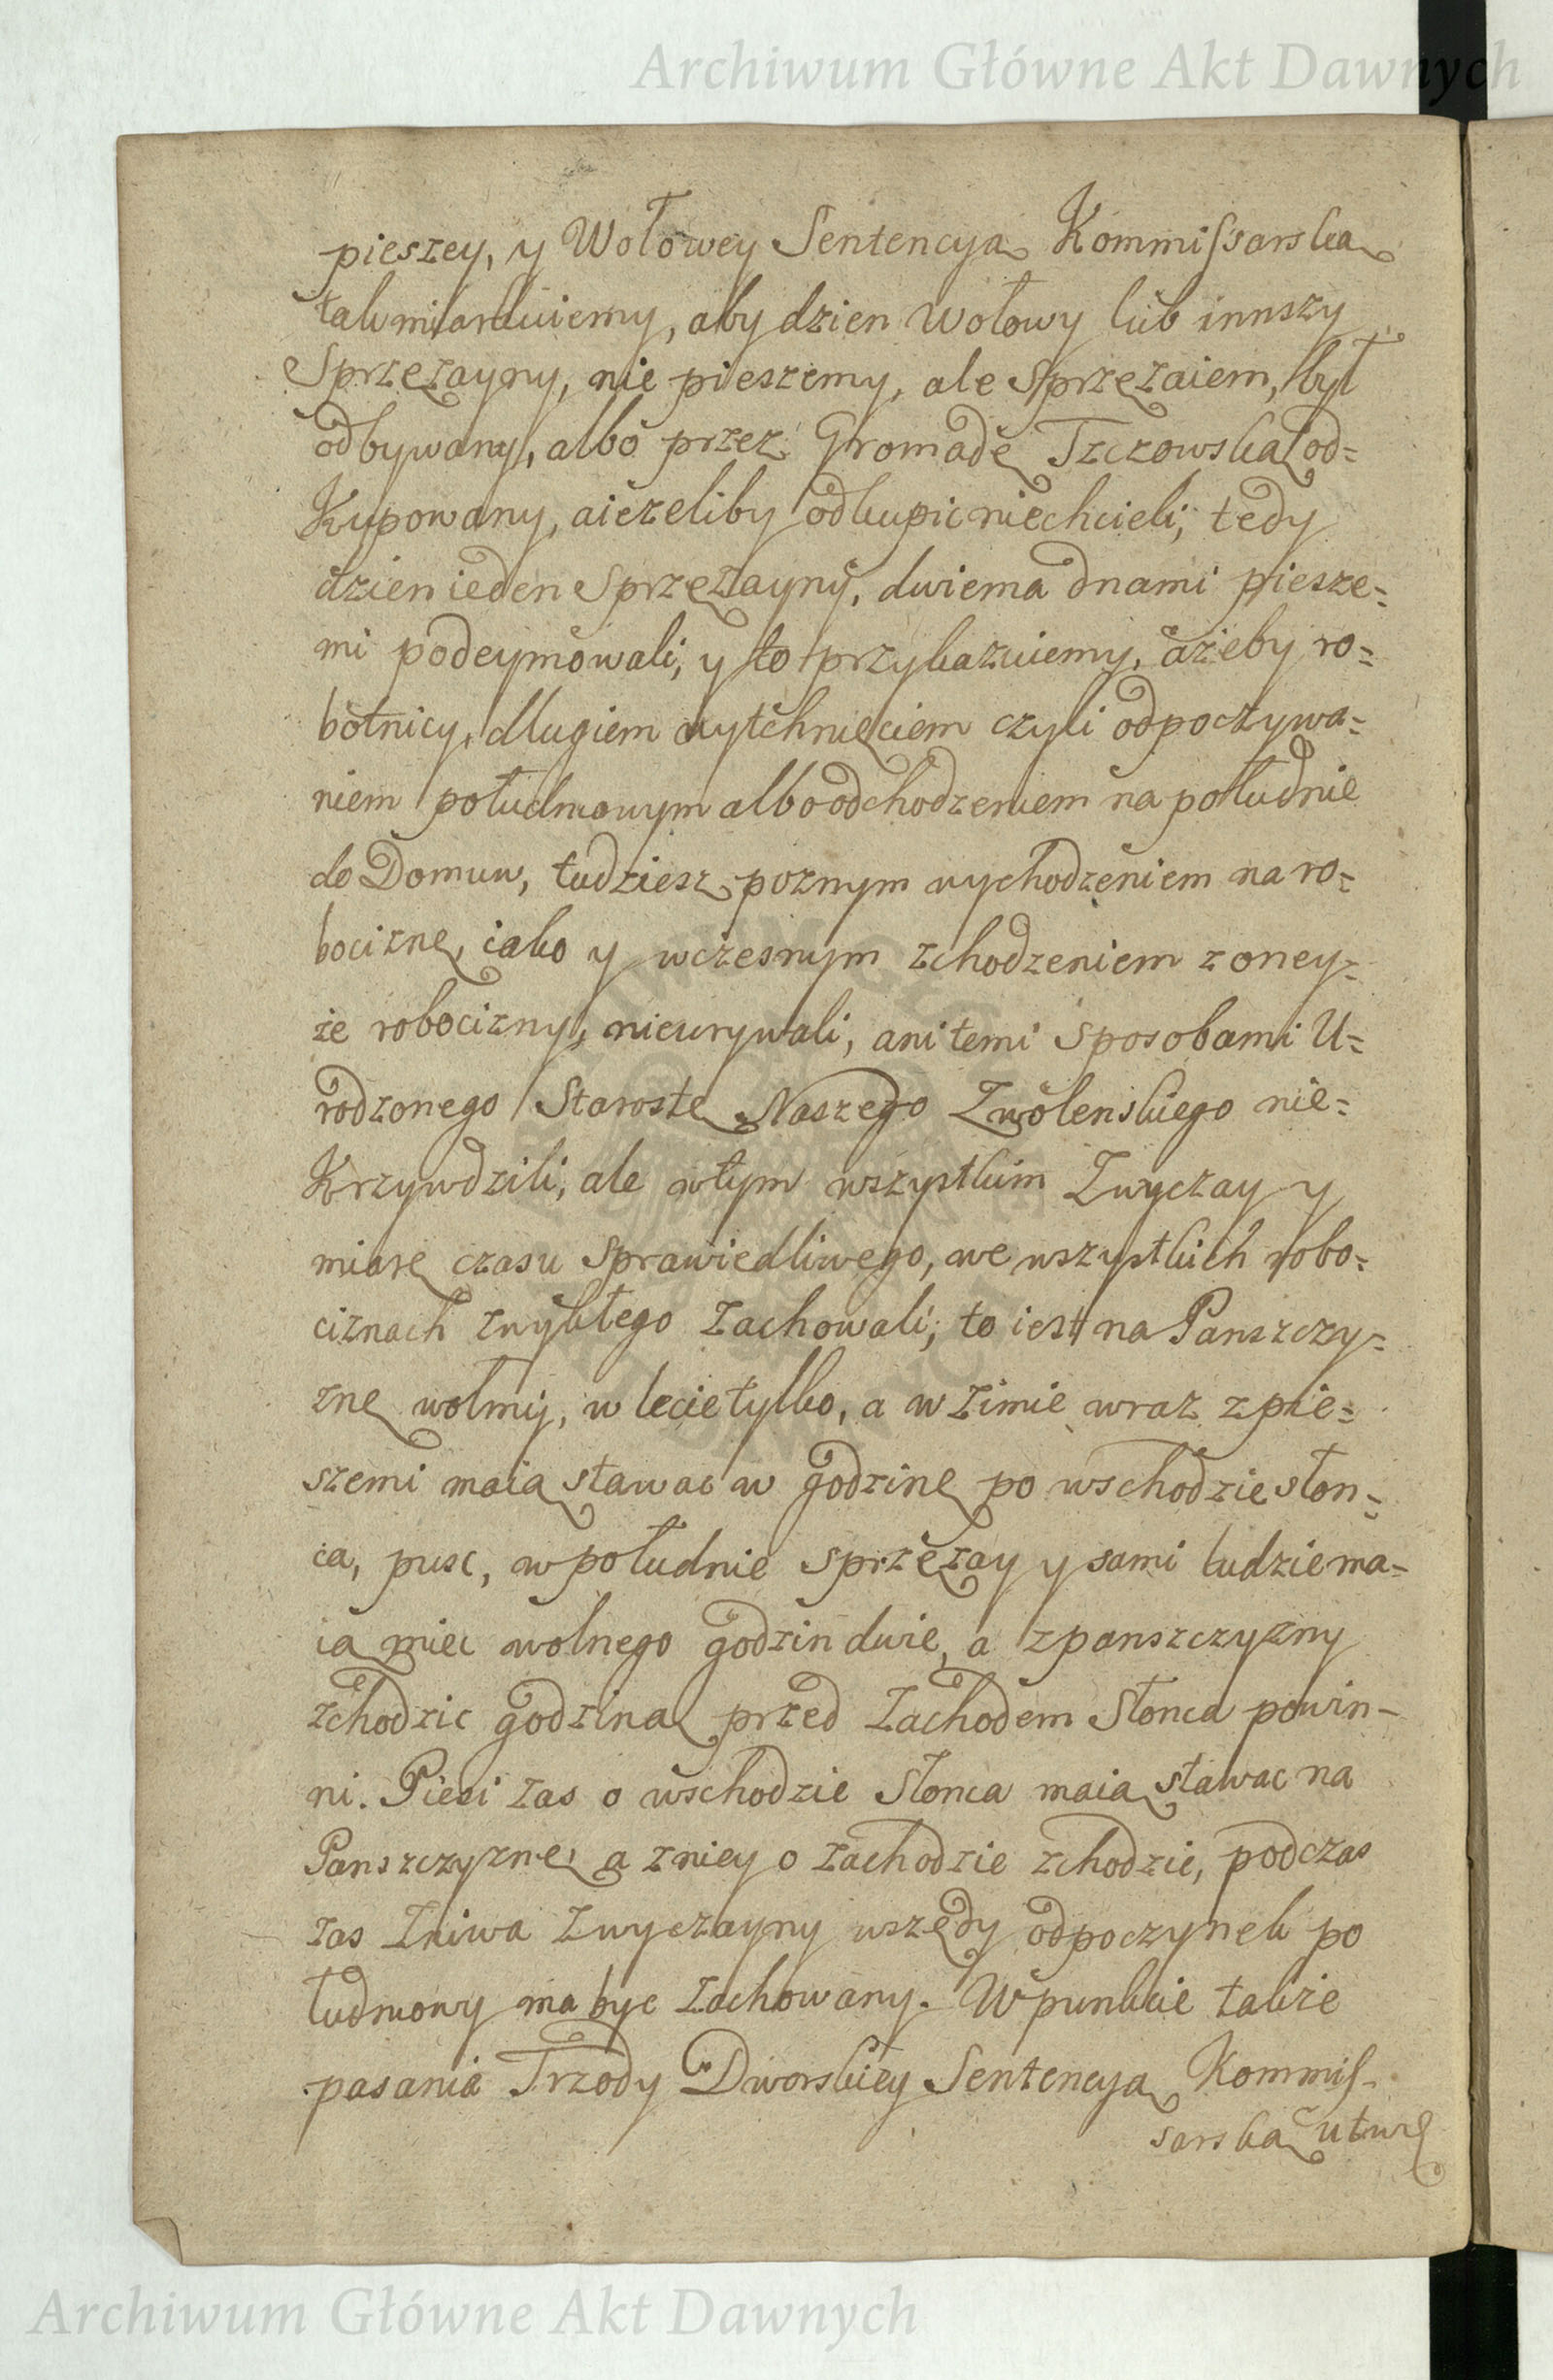 Archiwum Główne Akt Dawnych
pieszey, y Wołowey Sentencyą Kommissarską
tak miarkuiemy, aby dzien Wołowy lub innszy
Sprzężayny, nie pieszemy, ale Sprzężaiem, był
odbywany, albo przez Gromadę Tczowską od=
Kupowany, aieżeliby odkupic niechcieli, tedy
dzien ieden Sprzężayny, dwiema dnami piesze=
mi podeymowali, y to przykazuiemy, ażeby ro=
botnicy, długiem wytchnięciem czyli odpoczywa=
niem południowym albo odchodzeniem na południe
do Domuw, tudziesz poznym wychodzeniem na ro=
bociznę, iako y wczesnym zchodzeniem z oney=
że robocizny, nieurywali, ani temi sposobami U=
rodzonego Starostę Naszego Zwolenskiego nie=
Krzywdzili, ale wtym wszystkim Zwyczay y
miarę czasu sprawiedliwego, we wszystkich robo=
ciznach zwykłego zachowali, to iest na Panszczy=
znę wolmij, w lecie tylko, a w zimie wraz z pie=
szemi maią stawac w godzinę po wschodzie słon=
ca, pusc, w południe sprzężay y sami ludzie ma=
ią miec wolnego godzin dwie, a z panszczyzny
zchodzic godziną przed zachodem Słonca powin=
ni. Piesi zas o wschodzie Słonca maią stawac na
Panszczyznę, a zniey o zachodzie zchodzic, podczas
zas żniwa zwyczayny wszędy odpoczynek po
łudniowy ma byc zachowany. W punkcie także
pasania Trzody Dworskiey Sentencyą Kommis=
sarską utwę
Archiwum Główne Akt Dawnych